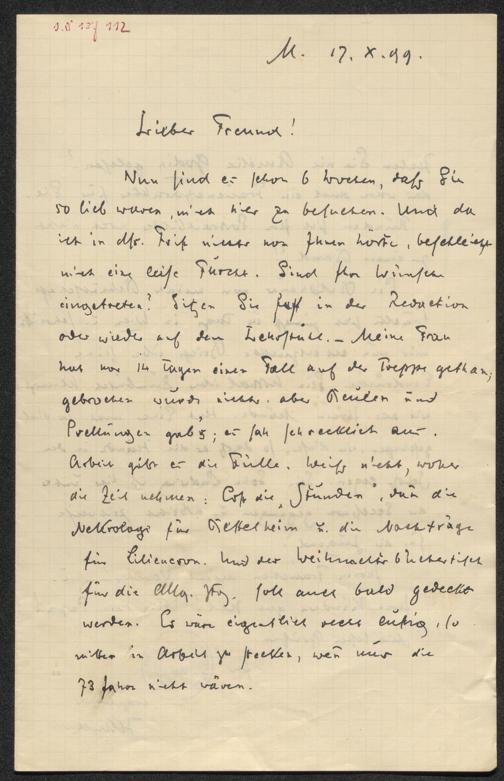 M. 17. X. 99.
Lieber Freund!
Nun sind es schon 6 Wochen, daß Sie
so lieb waren, mich hier zu besuchen. Und da
ich in dsr. Frist nichts von Ihnen hörte, beschleicht
mich eine leise Furcht. Sind Ihre Wünsche
eingetroffen? Sitzen Sie fest in der Redaction
oder wieder auf dem Lehrstuhl. – Meine Frau
hat vor 14 Tagen einen Fall auf der Treppe gethan;
gebrochen wurde nichts. aber Beulen und
Prellungen gab's; es sah schrecklich aus.
Arbeit gibt es die Fülle. Weiß nicht, woher
die Zeit nehmen: Erst die „Stunden", dann die
Nekrologe für Bettelheim u. die Nachträge
für Liliencron. Und der Weihnachtsbüchertisch
für die Allg. Ztg. soll auch bald gedeckt
werden. Es wäre eigentlich recht lustig, so
mitten in Arbeit zu stecken, wen nur die
73 Jahre nicht wären.